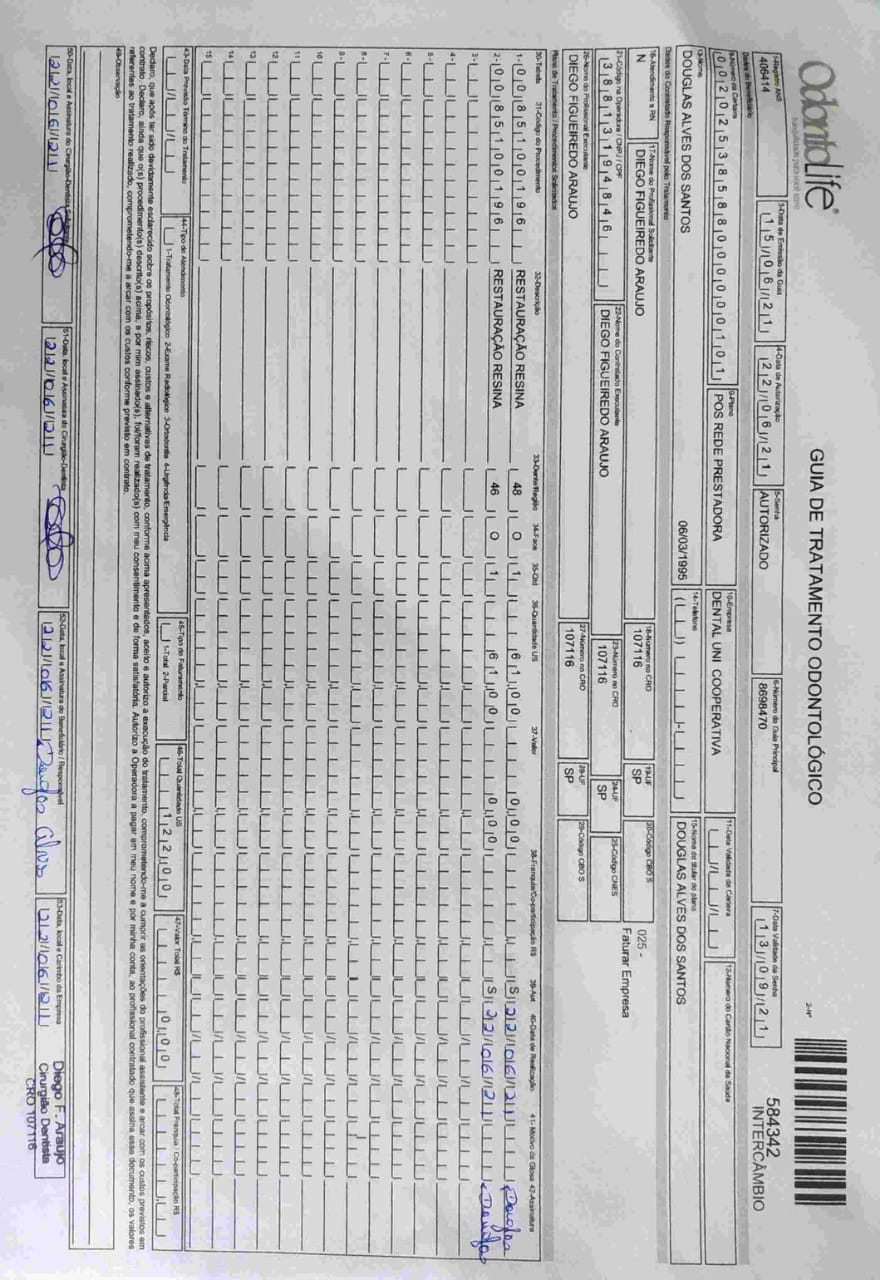 OdontoLife®
GUIA DE TRATAMENTO ODONTOLÓGICO
2-Nº
584342
INTERCÂMBIO
1-Registro ANS
406414
3-Data de Emissão da Guia
15/06/21
4-Data de Autorização
22/06/21
5-Senha
AUTORIZADO
6-Número da Guia Principal
8698470
7-Data Validade da Senha
13/09/21
Dados do Beneficiário
8-Número da Carteira
00202538588000000101
9-Plano
POS REDE PRESTADORA
10-Empresa
DENTAL UNI COOPERATIVA
11-Data Validade da Carteira
12-Número do Cartão Nacional de Saúde
13-Nome
DOUGLAS ALVES DOS SANTOS
06/03/1995
14-Telefone
15-Nome do titular do plano
DOUGLAS ALVES DOS SANTOS
Dados do Contratado Responsável pelo Tratamento
16-Atendimento a RN
N
17-Nome do Profissional Solicitante
DIEGO FIGUEIREDO ARAUJO
18-Número no CRO
107116
19-UF
SP
20-Código CBO S
025 -
Faturar Empresa
21-Código na Operadora / CNPJ / CPF
38813194846
22-Nome do Contratado Executante
DIEGO FIGUEIREDO ARAUJO
23-Número no CRO
107116
24-UF
SP
25-Código CNES
26-Nome do Profissional Executante
DIEGO FIGUEIREDO ARAUJO
27-Número no CRO
107116
28-UF
SP
29-Código CBO S
Plano de Tratamento / Procedimentos Solicitados
30-Tabela 31-Código do Procedimento 32-Descrição 33-Dente/Região 34-Face 35-Qtd 36-Quantidade US 37-Valor 38-Franquia/Co-participação R$ 39-Aut 40-Data de Realização 41- Motivo da Glosa 42-Assinatura
1- 00 85100196 RESTAURAÇÃO RESINA 48 O 1 61,00 0,00 S 22/06/21 Douglas
2- 00 85100196 RESTAURAÇÃO RESINA 46 O 1 61,00 0,00 S 22/06/21 Douglas
3-
4-
5-
6-
7-
8-
9-
10
11
12
13
14
15
43-Data Previsão Término do Tratamento
44-Tipo de Atendimento
1-Tratamento Odontológico 2-Exame Radiológico 3-Ortodontia 4-Urgência/Emergência
45-Tipo de Faturamento
1-Total 2-Parcial
46-Total Quantidade US
122,00
47-Valor Total R$
0,00
48-Total Franquia / Co-participação R$
Declaro, que após ter sido devidamente esclarecido sobre os propósitos, riscos, custos e alternativas de tratamento, conforme acima apresentados, aceito e autorizo a execução do tratamento, comprometendo-me a cumprir as orientações do profissional assistente e arcar com os custos previstos em
contrato. Declaro, ainda que o(s) procedimento(s) descrito(s) acima, e por mim assinado(s), foi/foram realizado(s) com meu consentimento e de forma satisfatória. Autorizo a Operadora a pagar em meu nome e por minha conta, ao profissional contratado que assina esse documento, os valores
referentes ao tratamento realizado, comprometendo-me a arcar com os custos conforme previsto em contrato.
49-Observação
50-Data, local e Assinatura do Cirurgião-Dentista
22/06/21
51-Data, local e Assinatura do Cirurgião-Dentista
22/06/21
52-Data, local e Assinatura do Beneficiário / Responsável
22/06/21 Douglas Alves
53-Data, local e Carimbo da Empresa
22/06/21
Diego F. Araujo
Cirurgião Dentista
CRO 107116